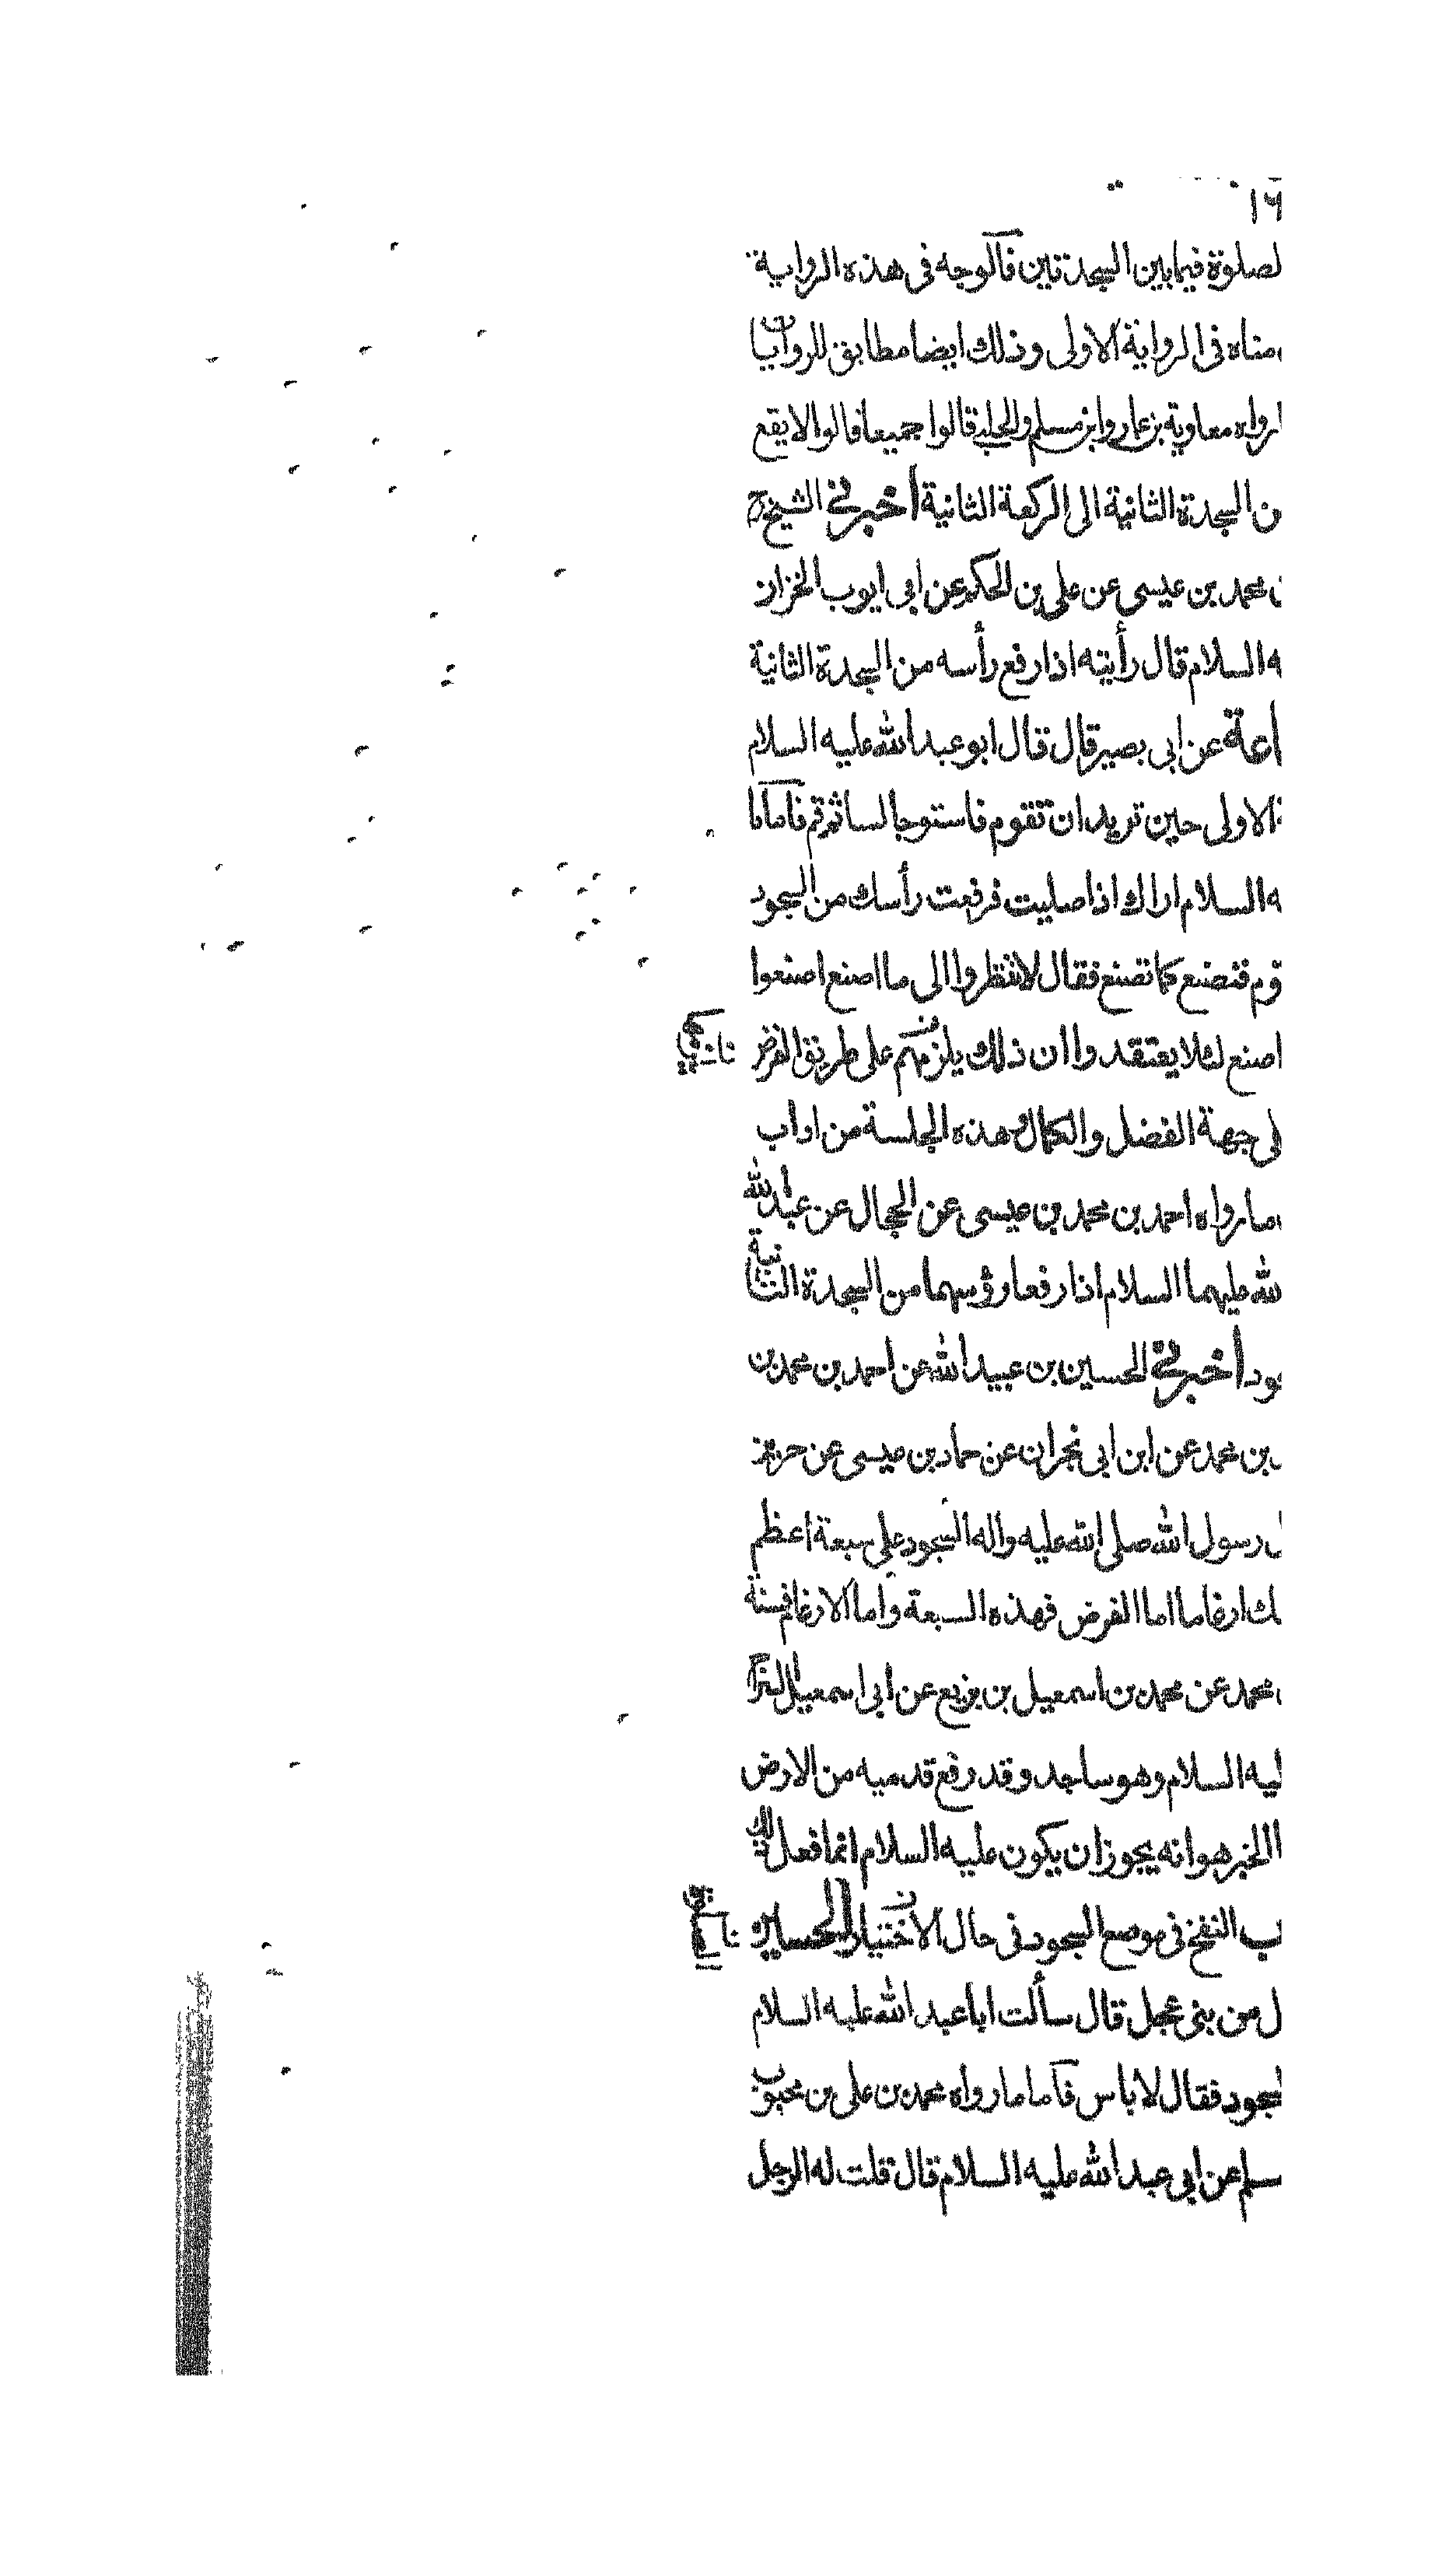 ١٦
لصلوة فيما بين السجدتين فالوجه في هذه الرواية
مناه في الرواية الاولى وذلك ايضا مطابق للروايات
رواه معاوية بن عمار وابن مسلم والحلبي قالوا جميعا قالوا لا يقع
ن السجدة الثانية الى الركعة الثانية أخبرني الشيخ
محمد بن عيسى عن علي بن الحكم عن ابي ايوب الخزاز
ه السلام قال رأيته اذا رفع رأسه من السجدة الثانية
اعة عن ابي بصير قال قال ابو عبد الله عليه السلام
الاولى حين تريد ان تقوم فاستو جالسا ثم قم فاما ما
ه السلام اراك اذا صليت فرفعت رأسك من السجود
قوم فنصنع كما تصنع فقال لا تنظروا الى ما اصنع اصنعوا
اصنع لئلا يعتقدوا ان ذلك يلزمهم على طريق الفرض
لى جهة الفضل والكمال وهذه الجلسة من اداب
ما رواه احمد بن محمد بن عيسى عن الحجال عن عبد الله
لله عليهما السلام اذا رفعا رؤسهما من السجدة الثانية
ود أخبرني الحسين بن عبيد الله عن احمد بن محمد بن
بن محمد عن ابن ابي نجران عن حماد بن عيسى عن حريز
ل رسول الله صلى الله عليه واله السجود على سبعة اعظم
ك ارغاما اما الفرض فهذه السبعة واما الارغام فسنة
محمد عن محمد بن اسمعيل بن بزيع عن ابي اسمعيل السراج
ليه السلام وهو ساجد وقد رفع قدميه من الارض
ا الخبر هو انه يجوز ان يكون عليه السلام انما فعل ذلك
ب النفخ في موضع السجود في حال الاختيار الحسين
ل من بني عجل قال سألت ابا عبد الله عليه السلام
لسجود فقال لا باس فاما ما رواه محمد بن علي بن محبوب
سلم عن ابي عبد الله عليه السلام قال قلت له الرجل